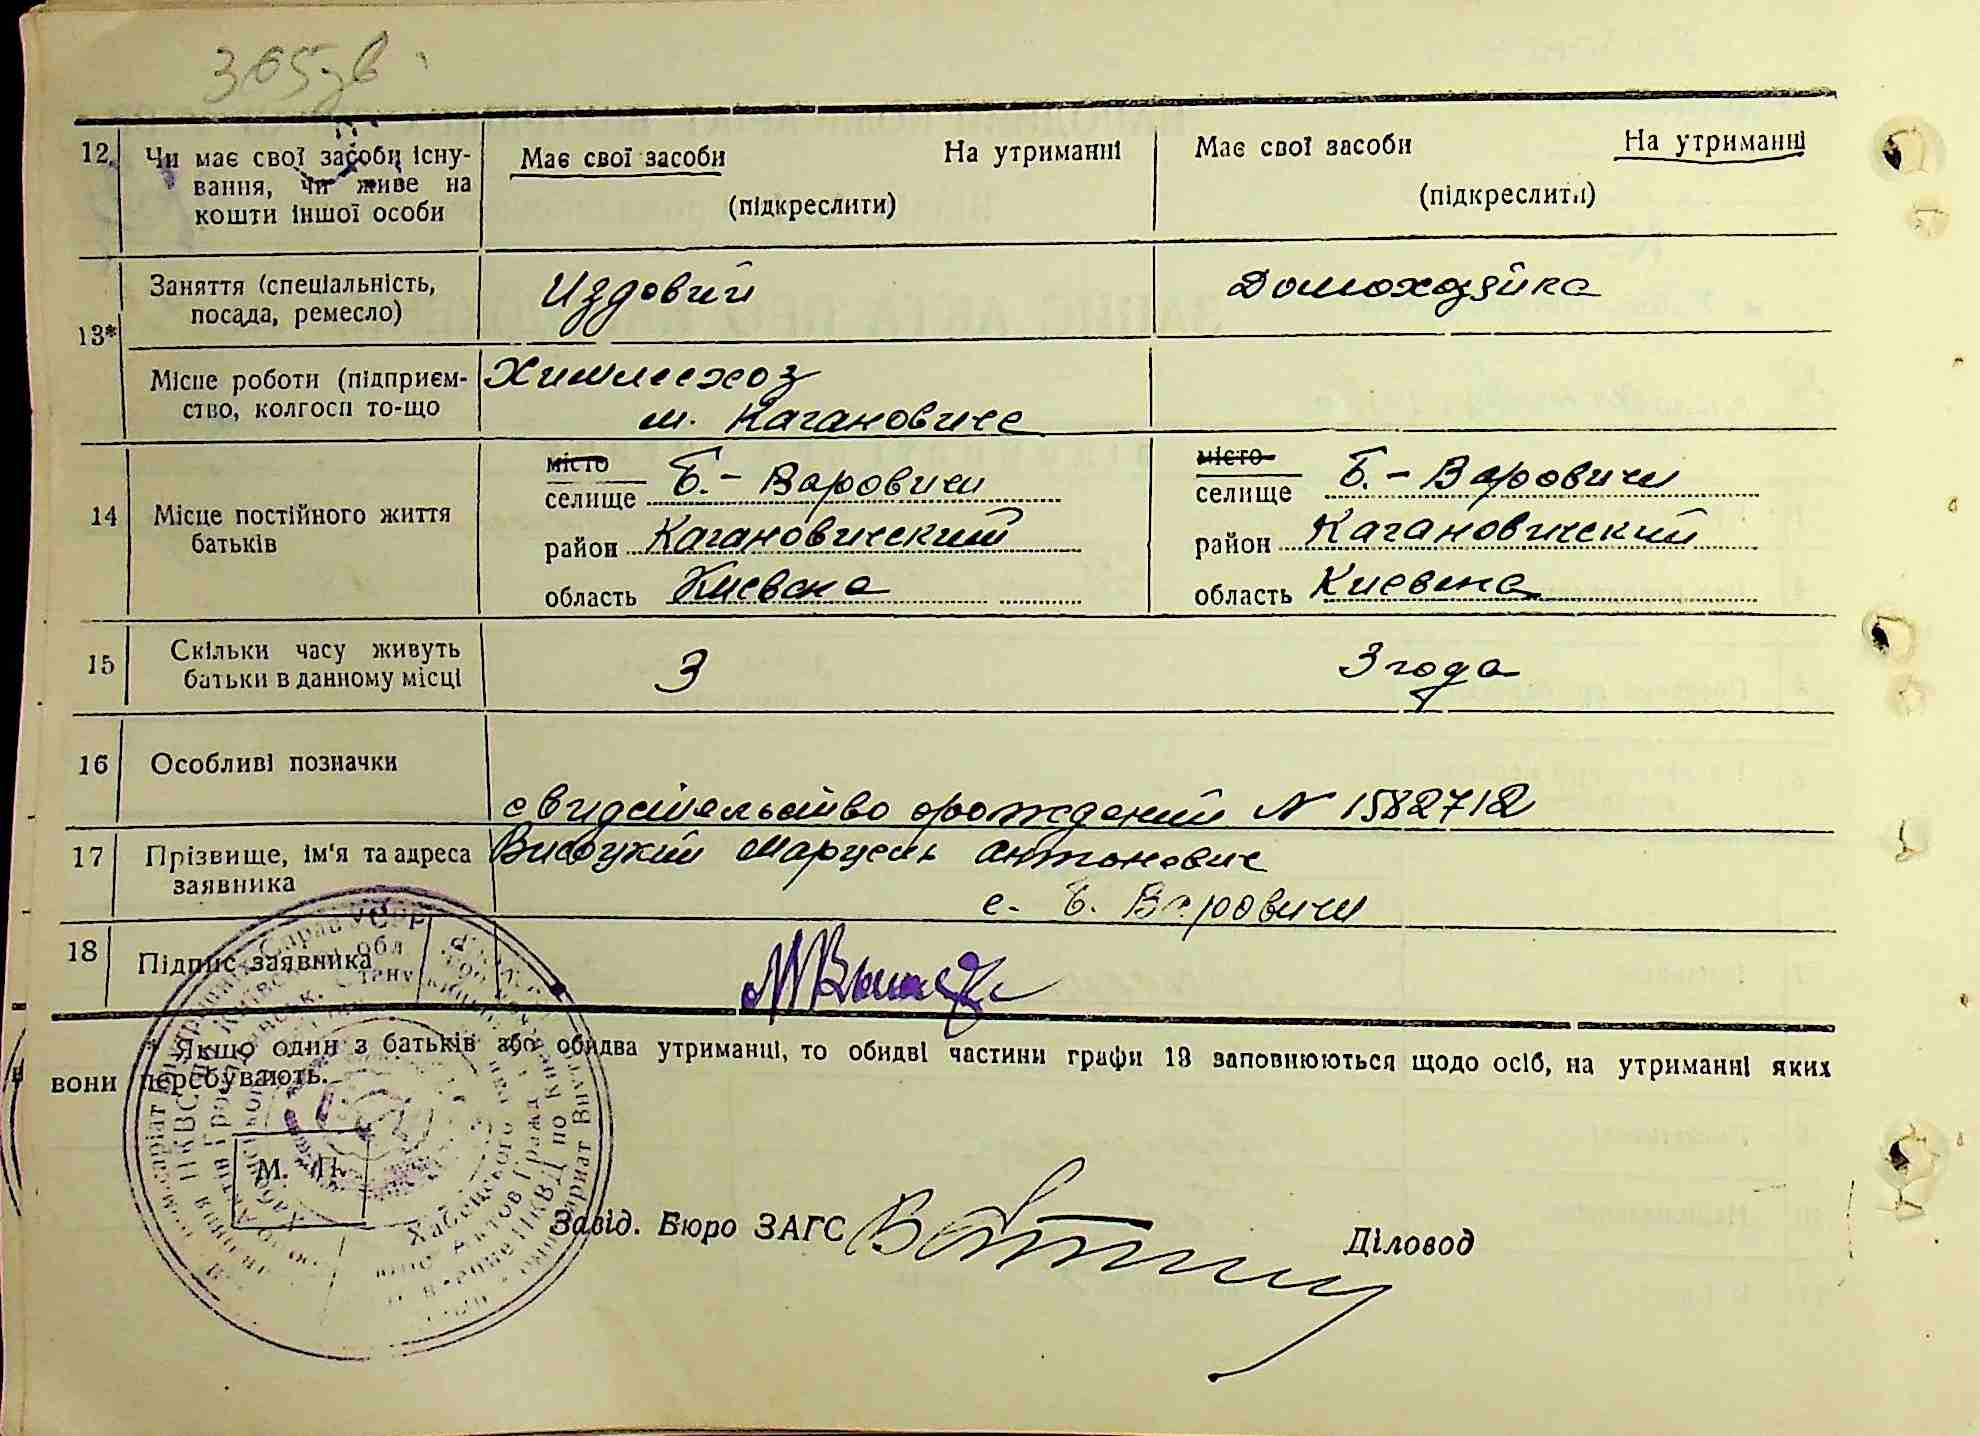 365 зв.
12. Чи має свої засоби існування, чи живе на кошти іншої особи Має свої засоби На утриманні (підкреслити) Має свої засоби На утриманні (підкреслити)
13* Заняття (спеціальність, посада, ремесло) Издовий Домохазяйка
Місце роботи (підприємство, колгосп то-що Химлесхоз
м. Кагановиче
14 Місце постійного життя батьків
місто
селище Б.-Варовичи
район Кагановический
область Киевска
місто
селище Б.-Варовичи
район Кагановический
область Киевска
15 Скільки часу живуть батьки в данному місці 3 3 года
16 Особливі позначки
свидетельство орождений N 1582712
17 Прізвище, ім'я та адреса заявника Висоцкий Марцель Антонович
с. Б. Варовичи
18 Підпис заявника
* Якщо один з батьків або обидва утриманці, то обидві частини графи 13 заповнюються щодо осіб, на утриманні яких
вони перебувають.
М. П.
Завід. Бюро ЗАГС Діловод